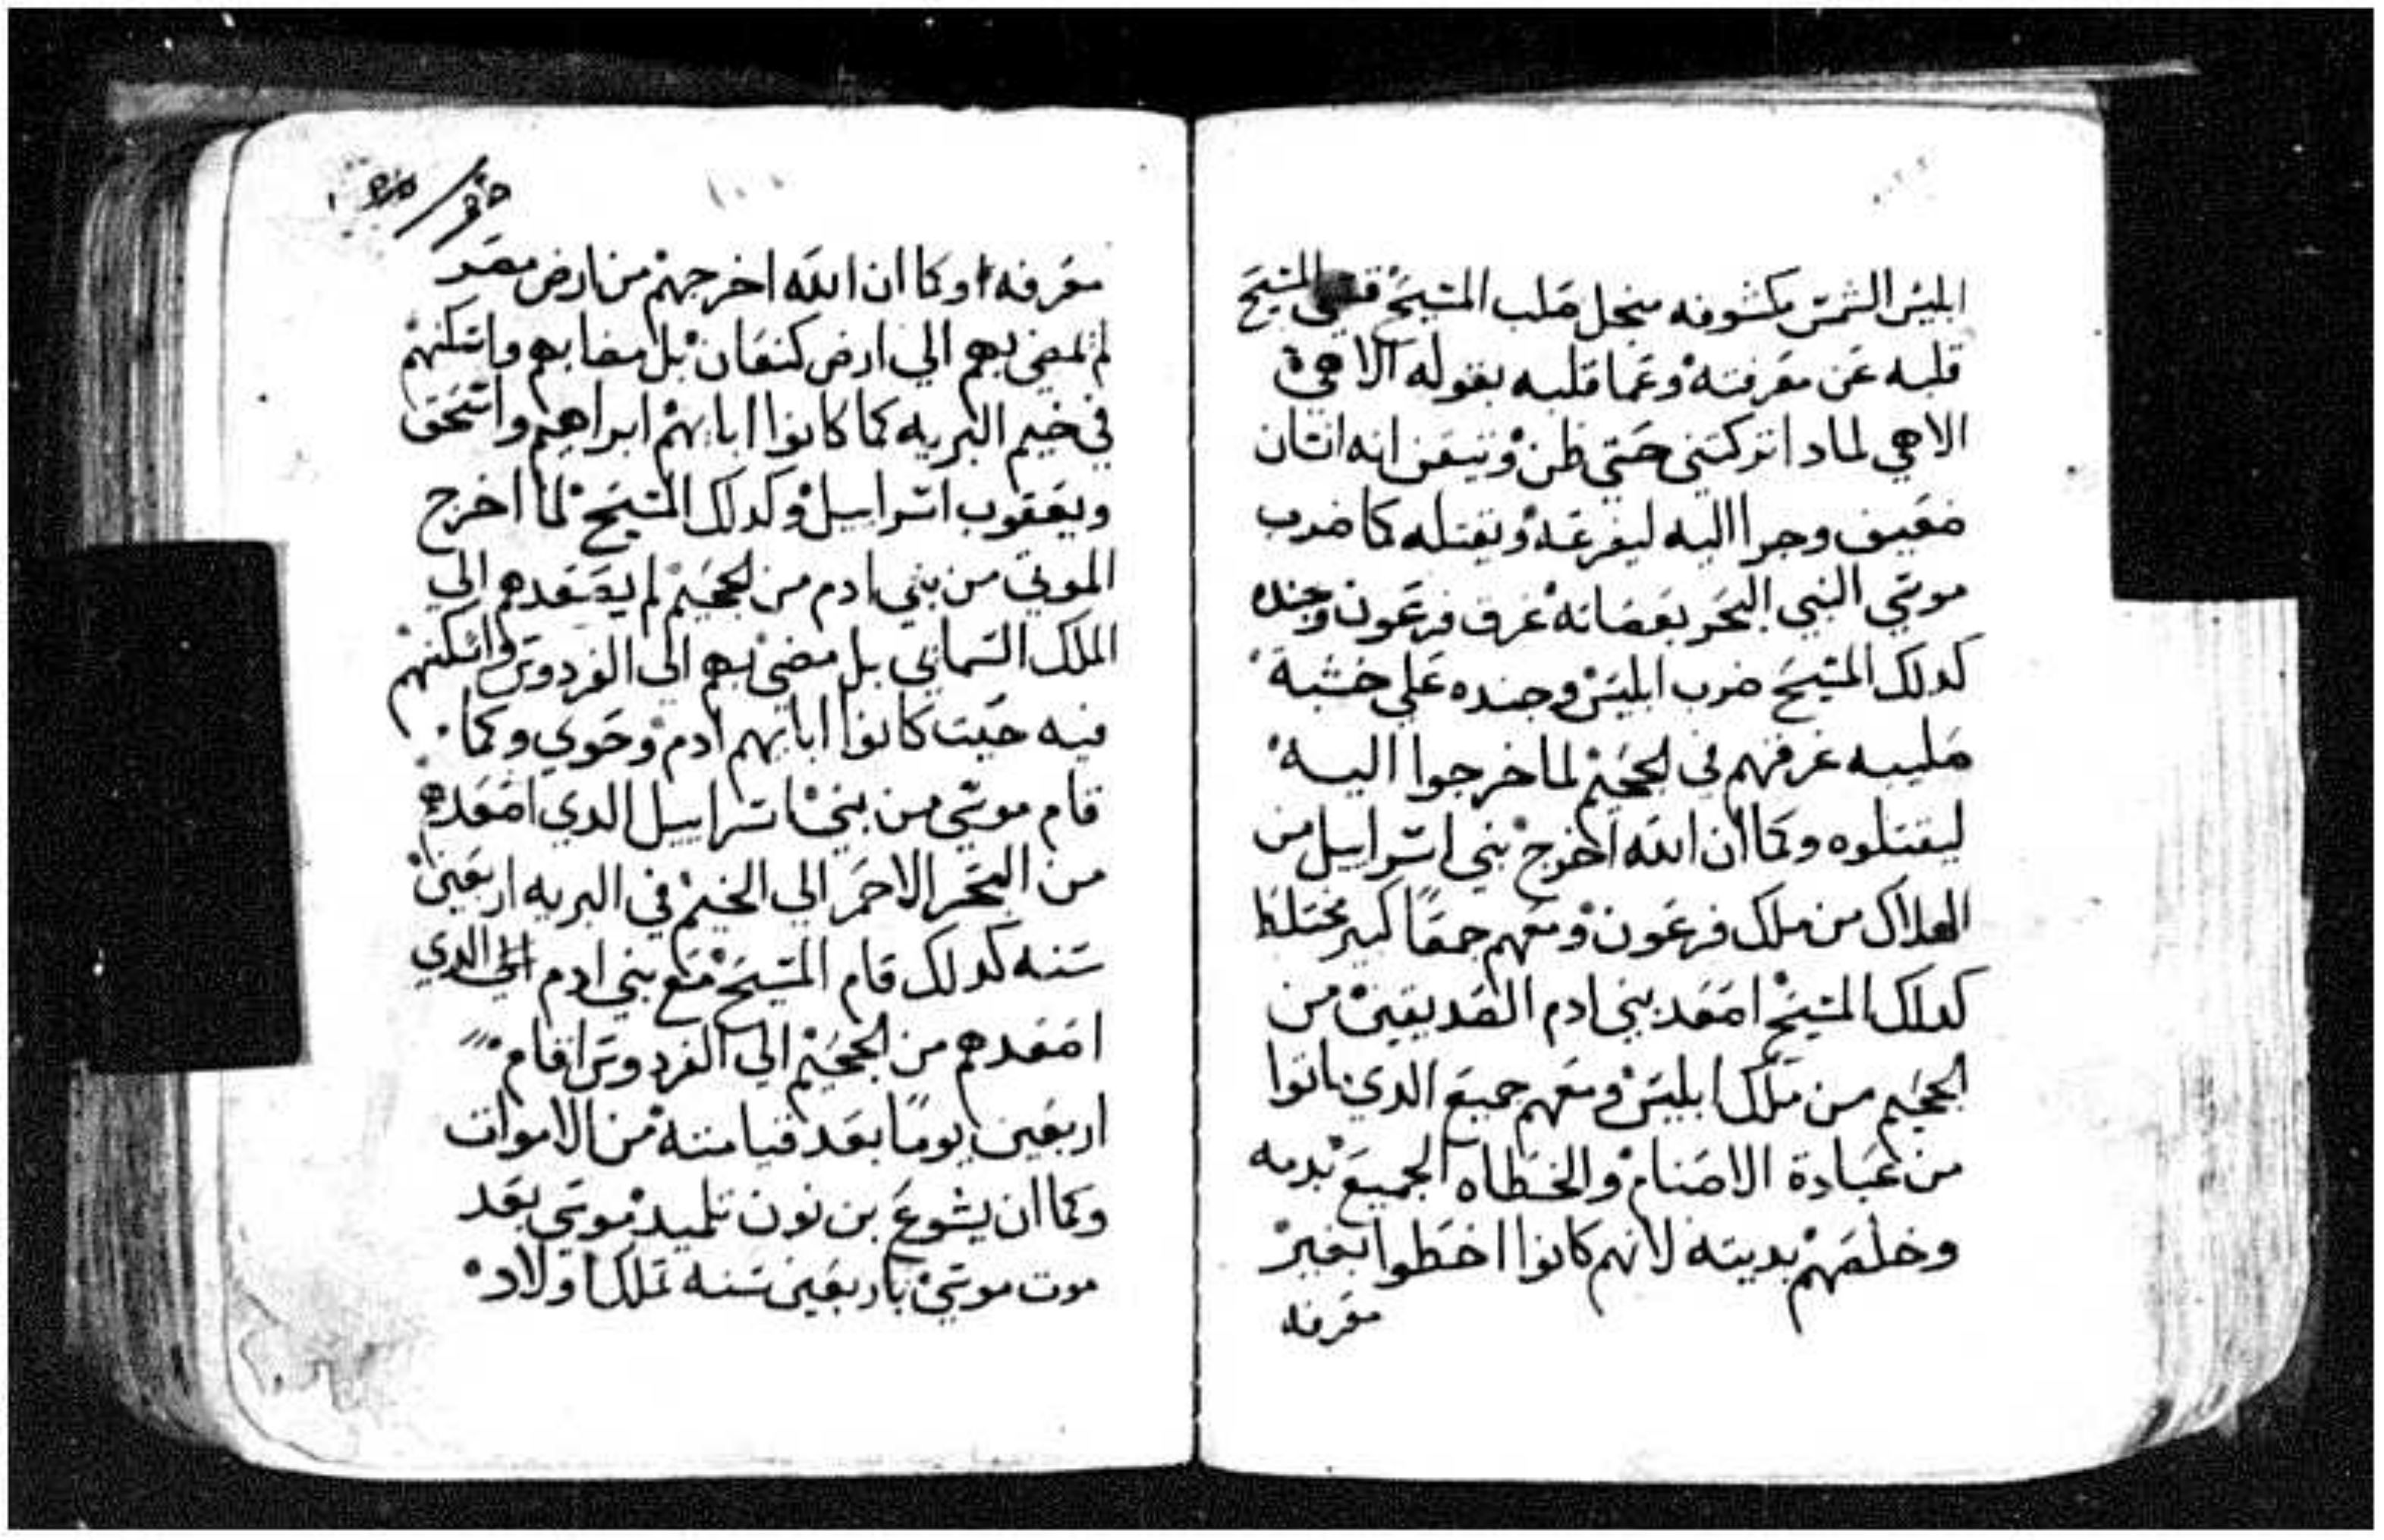 ابليس الشمس مكشوفه منجل صلب المسيح المسيح
قلبه عن معرفته وعما قلبه بقوله الاهي
الاهي لمادا تركتني حتي ظن وتيقن انه انسان
ضعيف وجرا اليه ليفرعه ويقتله كما ضرب
موسي النبي البحر بعصاته غرق فرعون وجنده
كدلك المسيح ضرب ابليس وجنده علي خشبة
صليبه غرقهم في الجحيم لما خرجوا اليه
ليقتلوه وكما ان الله اخرج بني اسراييل من
الهلاك من ملك فرعون ومعهم جمعًا كبير مختلط
كدلك المسيح اصعد بني ادم الصديقين من
الجحيم من ملك ابليس ومعهم جميع الدي تابوا
من عبادة الاصنام والخطاه الجميع بدمه
وخلصهم بديته لانهم كانوا اخطوا بغير
معرفه
معرفه وكما ان الله اخرجهم من ارض مصر
لم يمضي بهم الي ارض كنعان بل مضا بهم واسكنهم
في خيم البريه كما كانوا ابايهم ابراهيم واسحق
ويعقوب اسراييل وكدلك المسيح لما اخرج
الموتي من بني ادم من الجحيم لم يصعدهم الي
الملك السماني بل مضي بهم الي الفردوس واسكنهم
فيه حيت كانوا ابايهم ادم وحوي وكما
قام موسي من بني اسراييل الدي اصعدهم
من البحر الاحمر الي الخيم في البريه اربعين
سنه كدلك قام المسيح مع بني ادم الدي
اصعدهم من الجحيم الي الفردوس اقام
اربعين يومًا بعد قيامته من الاموات
وكما ان يشوع بن نون تلميد موسي بعد
موت موسي باربعين سنه تملك اولاد